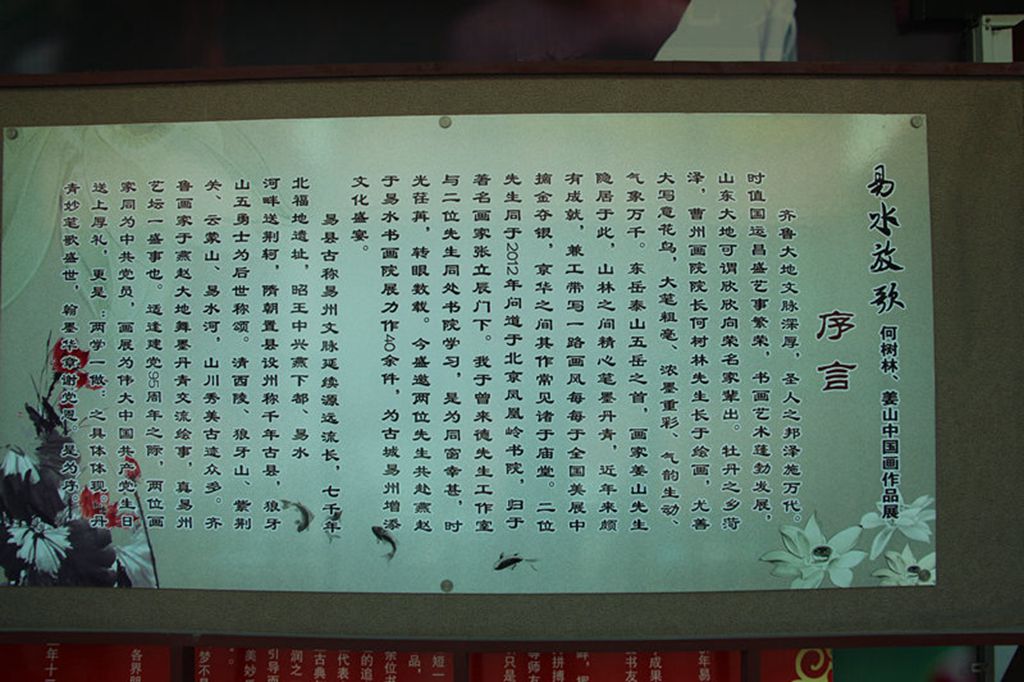 易水放歌 何树林、姜山中国画作品展
序言
齐鲁大地文脉深厚，圣人之邦泽施万代。
时值国运昌盛艺事繁荣，书画艺术蓬勃发展，
山东大地可谓欣欣向荣名家辈出。牡丹之乡菏
泽，曹州画院院长何树林先生长于绘画，尤善
大写意花鸟，大笔粗毫、浓墨重彩、气韵生动、
气象万千。东岳泰山五岳之首，画家姜山先生
隐居于此，山林之间精心笔墨丹青，近年来颇
有成就，兼工带写一路画风每每于全国美展中
摘金夺银，京华之间其作常见诸于庙堂。二位
先生同于2012年问道于北京凤凰岭书院，归于
著名画家张立辰门下。我于曾来德先生工作室
与二位先生同处书院学习，是为同窗幸甚，时
光荏苒，转眼数载。今盛邀两位先生共赴燕赵
于易水书画院展力作40余件，为古城易州增添
文化盛宴。
易县古称易州文脉延续源远流长，七千年
北福地遗址，昭王中兴燕下都、易水
河畔送荆轲，隋朝置县设州称千年古县，狼牙
山五勇士为后世称颂。清西陵、狼牙山、紫荆
关、云蒙山、易水河，山川秀美古迹众多。齐
鲁画家于燕赵大地舞墨丹青交流绘事，真易州
艺坛一盛事也。适逢建党95周年之际，两位画
家同为中共党员，画展为伟大中国共产党生日
送上厚礼，更是：两学一做：之具体体现。丹
青妙笔歌盛世，翰墨华章谢党恩。是为序。